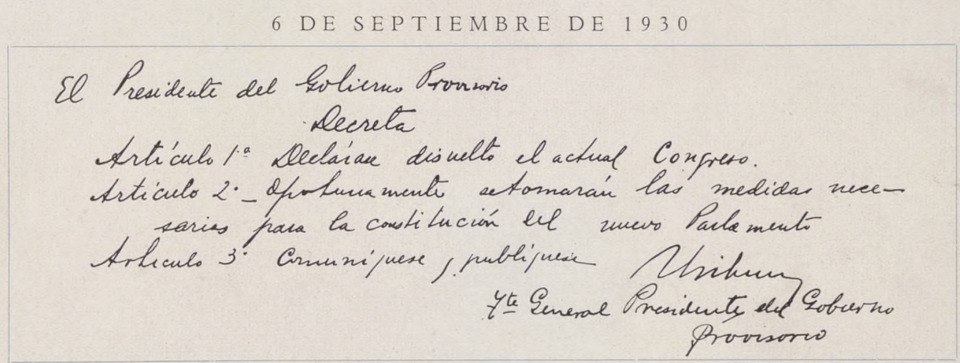 6 DE SEPTIEMBRE DE 1930
El Presidente del Gobierno Provisorio
Decreta
Artículo 1º Declárase disuelto el actual Congreso.
Artículo 2º – Oportunamente se tomarán las medidas nece-
sarias para la constitución del nuevo Parlamento
Artículo 3º Comuníquese y publíquese
Uriburu
Tte General Presidente del Gobierno
Provisorio